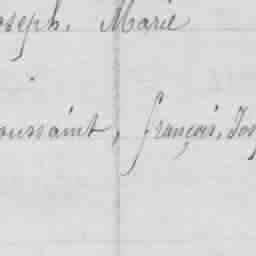 oseph. Marie
oussaint, françois, Jos